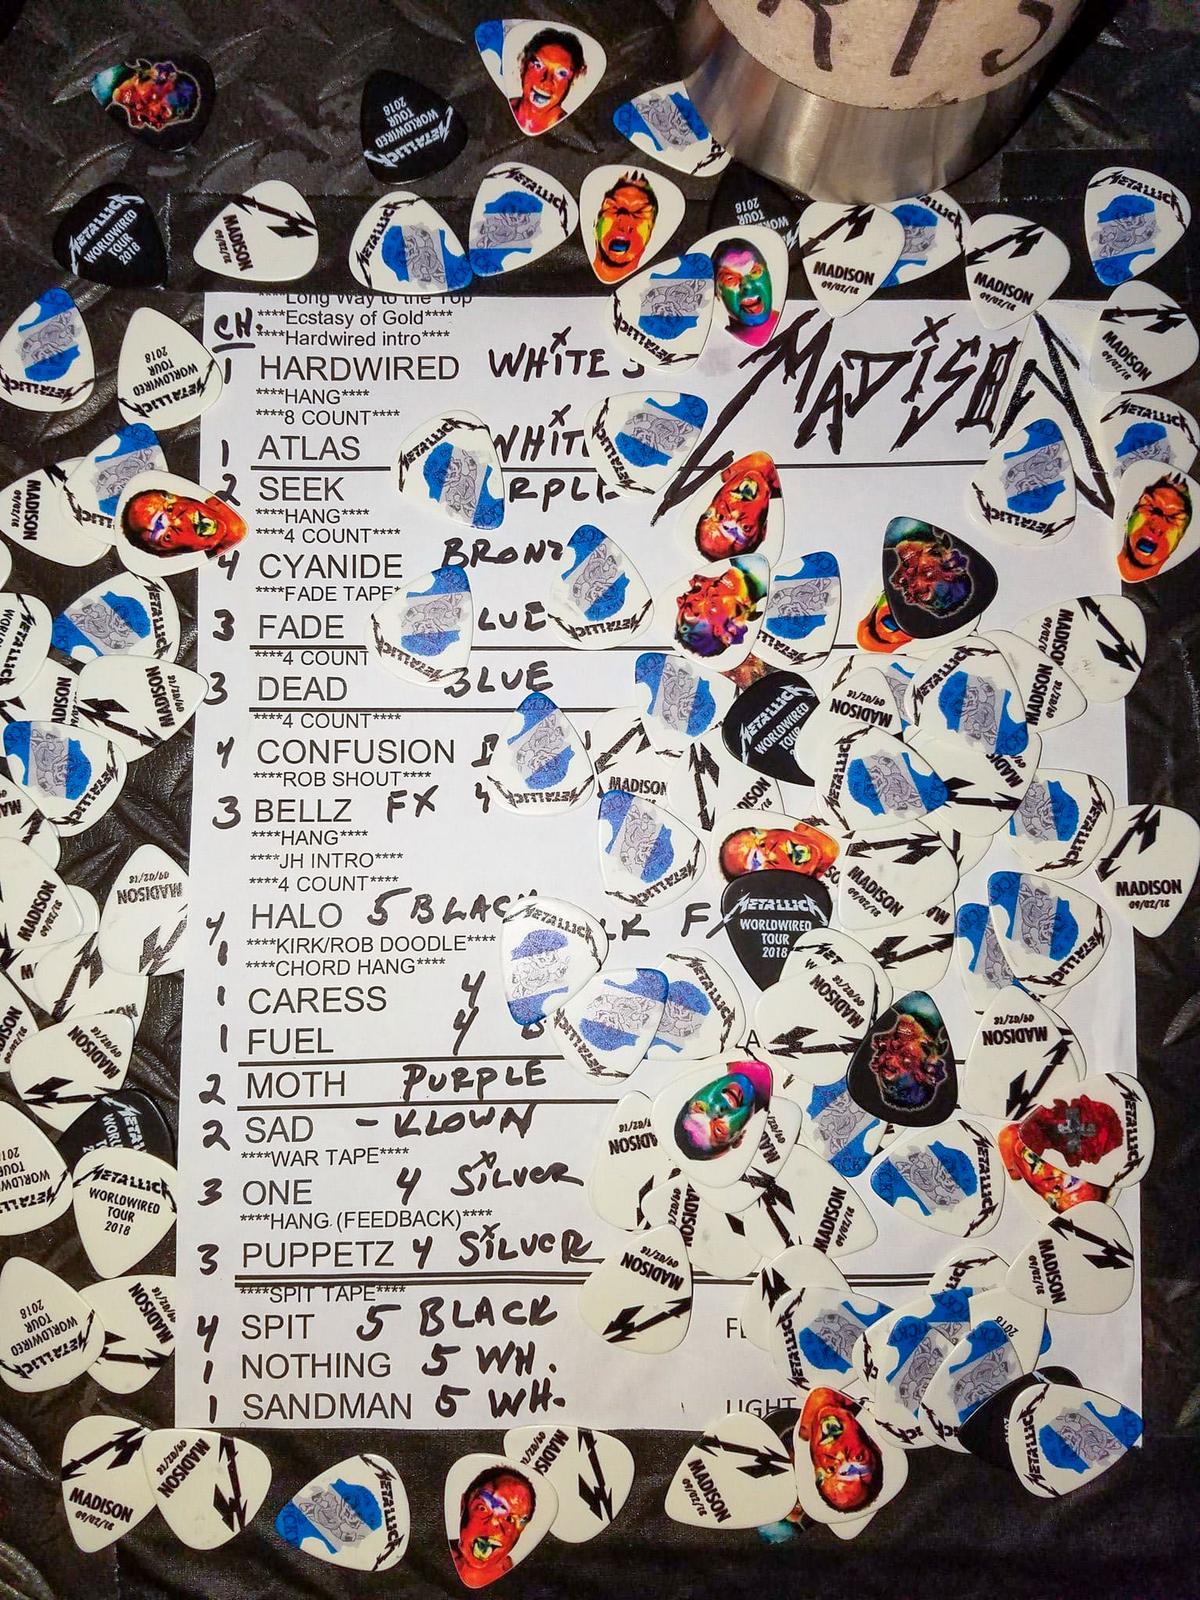 RTS
Long Way to the Top
****Ecstasy of Gold****
****Hardwired intro****
CH.
MADISON
1 HARDWIRED WHITE
****HANG****
****8 COUNT****
1 ATLAS WHIT
2 SEEK RPLE
****HANG****
****4 COUNT****
4 CYANIDE BRONZ
****FADE TAPE*
3 FADE LUE
****4 COUNT
3 DEAD BLUE
****4 COUNT****
4 CONFUSION
****ROB SHOUT****
3 BELLZ FX 4
****HANG****
****JH INTRO****
****4 COUNT****
4 HALO 5 BLAC CK FX
1 ****KIRK/ROB DOODLE****
****CHORD HANG****
1 CARESS 4
1 FUEL 4
2 MOTH PURPLE
2 SAD - KLOWN
****WAR TAPE****
3 ONE 4 SILVER
****HANG (FEEDBACK)****
3 PUPPETZ 4 SILVER
****SPIT TAPE****
4 SPIT 5 BLACK
1 NOTHING 5 WH.
1 SANDMAN 5 WH.
LIGHT
METALLICA
WORLDWIRED
TOUR
2018
MADISON
09/02/18